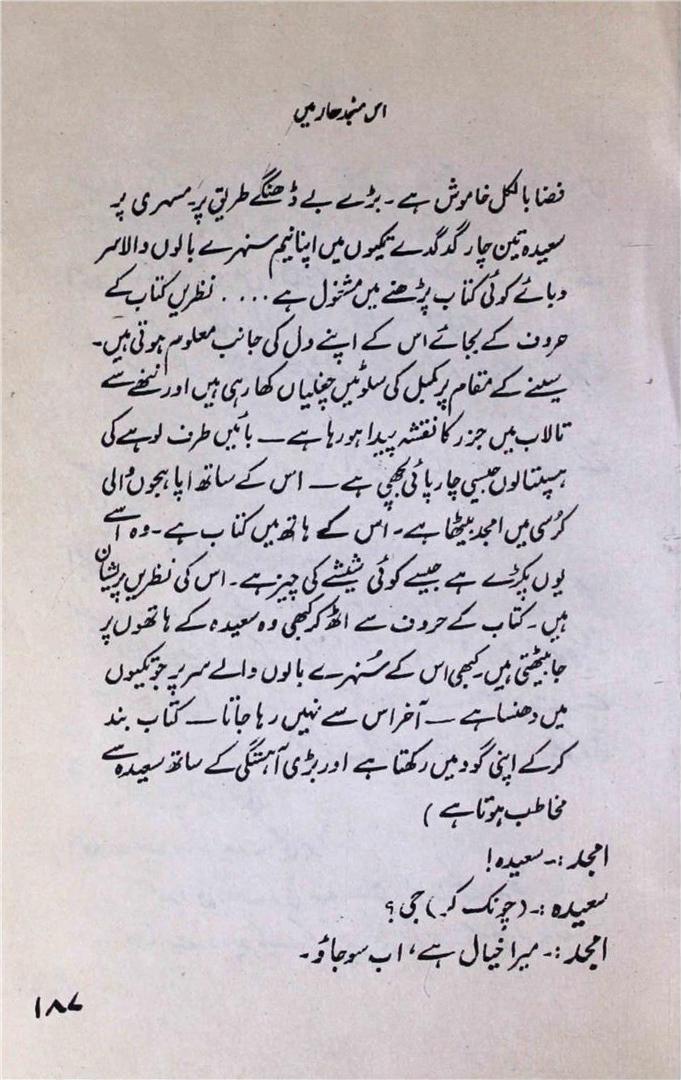 اس منجدھار میں
فضا بالکل خاموش ہے۔ بڑے بے ڈھنگے طریق پر۔ مسہری پر
سعیدہ تین چار گدگدے تکیوں میں اپنا نیم سنہرے بالوں والا سر
دبائے کوئی کتاب پڑھنے میں مشغول ہے .... نظریں کتاب کے
حروف کے بجائے اس کے اپنے دل کی جانب معلوم ہوتی ہیں۔
سینے کے مقام پر کمبل کی سلوٹیں چغلیاں کھا رہی ہیں اور ننھے سے
تالاب میں جزر کا نقشہ پیدا ہو رہا ہے ــ بائیں طرف لوہے کی
ہسپتالوں جیسی چارپائی بچھی ہے ــ اس کے ساتھ اپاہجوں والی
کرسی میں امجد بیٹھا ہے۔ اس کے ہاتھ میں کتاب ہے۔ وہ اسے
یوں پکڑے ہے جیسے کوئی شیشے کی چیز ہے۔ اس کی نظریں پریشان
ہیں۔ کتاب کے حروف سے اٹھ کر کبھی وہ سعیدہ کے ہاتھوں پر
جا بیٹھتی ہیں۔ کبھی اس کے سُنہرے بالوں والے سر پر جو تکیوں
میں دھنسا ہے ــ آخر اس سے نہیں رہا جاتا ــ کتاب بند
کر کے اپنی گود میں رکھتا ہے اور بڑی آہستگی کے ساتھ سعیدہ سے
مخاطب ہوتا ہے )
امجد :۔ سعیدہ!
سعیدہ :۔ (چونک کر) جی؟
امجد :۔ میرا خیال ہے، اب سو جاؤ۔
۱۸۷